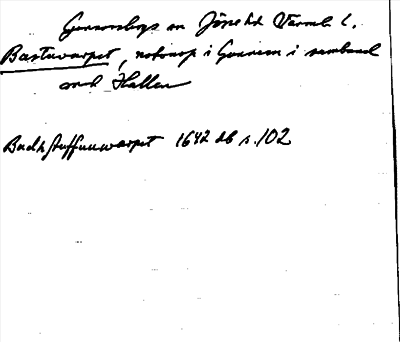 Gunnarskogs sn Jösse hd Värml. l.
Bastuvarpet, notvarp i Gunnern i samband
med Hallen
Badhstuffuuwarpet 1642 db s. 102